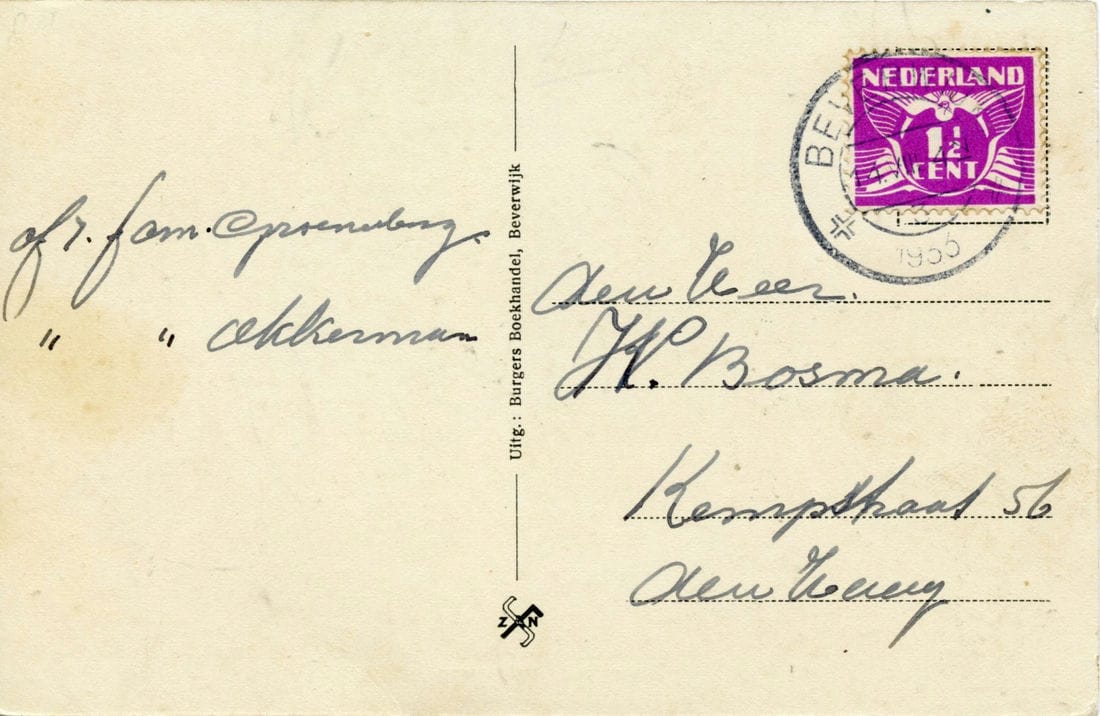 afz. fam. Groeneberg.
" " Akkerman
Uitg.: Burgers Boekhandel, Beverwijk
ZN
NEDERLAND
1½
CENT
BEV
1935
den Heer.
H. Bosma.
Kempstraat 56
den Haag